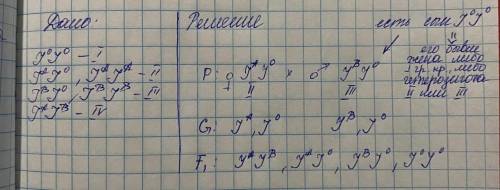 Дано:
J⁰J⁰ – I
JᴬJ⁰, JᴬJᴬ – II
JᴮJ⁰, JᴮJᴮ – III
JᴬJᴮ – IV
Решение
есть сын J⁰J⁰
его
жена либо
I гр. кр. либо
гетерозигота
II или III
P: ♀ JᴬJ⁰ × ♂ JᴮJ⁰
II III
G: Jᴬ, J⁰ Jᴮ, J⁰
F₁: JᴬJᴮ, JᴬJ⁰, JᴮJ⁰, J⁰J⁰